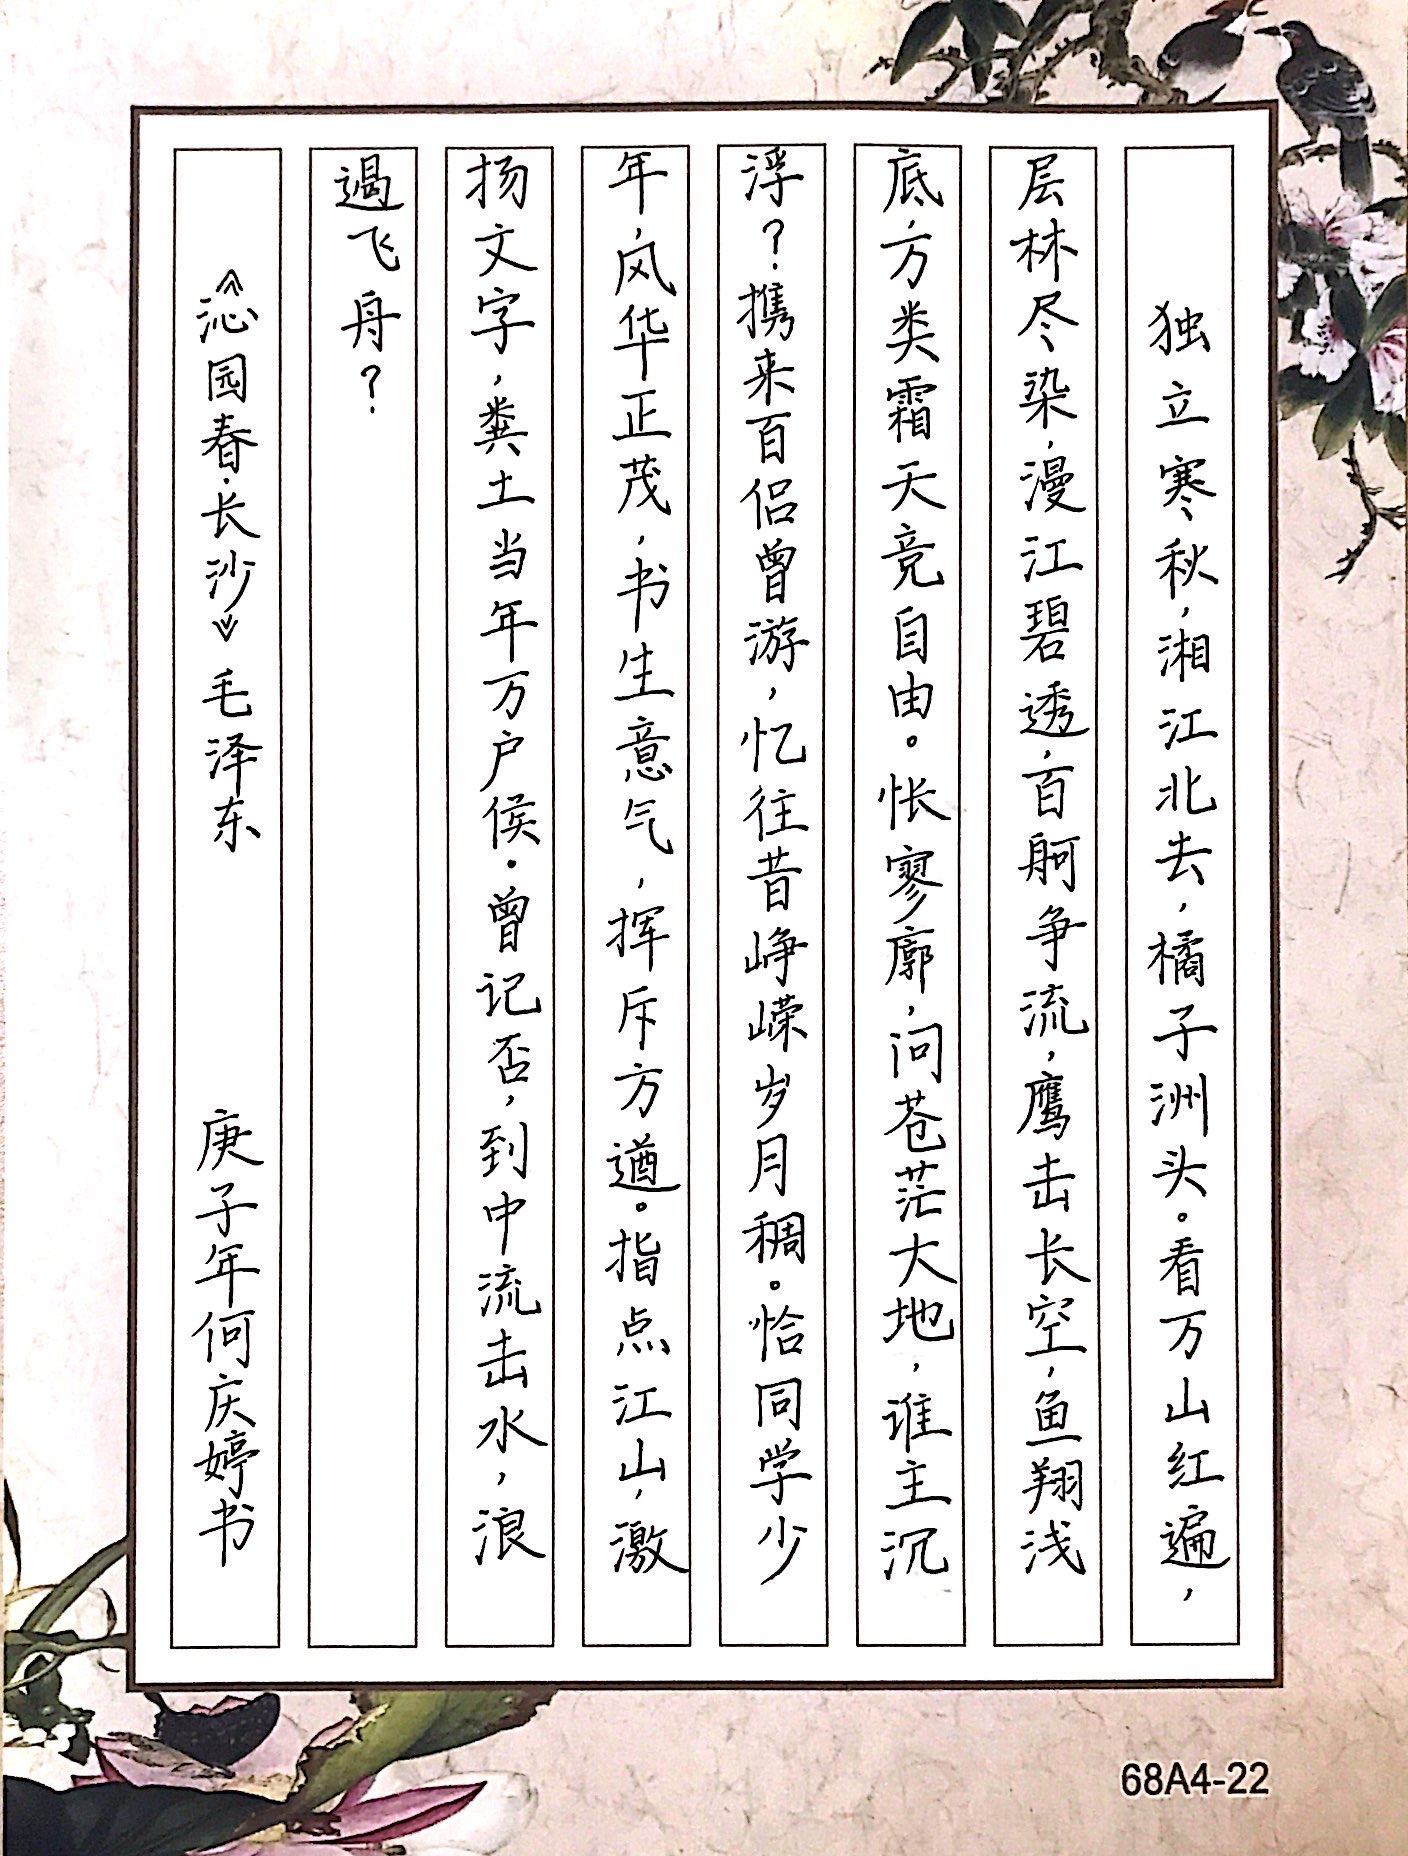 独立寒秋，湘江北去，橘子洲头。看万山红遍，
层林尽染，漫江碧透，百舸争流，鹰击长空，鱼翔浅
底，方类霜天竞自由。怅寥廓，问苍茫大地，谁主沉
浮？携来百侣曾游，忆往昔峥嵘岁月稠。恰同学少
年，风华正茂，书生意气，挥斥方遒。指点江山，激
扬文字，粪土当年万户侯。曾记否，到中流击水，浪
遏飞舟？
《沁园春·长沙》毛泽东 庚子年何庆婷书
68A4-22